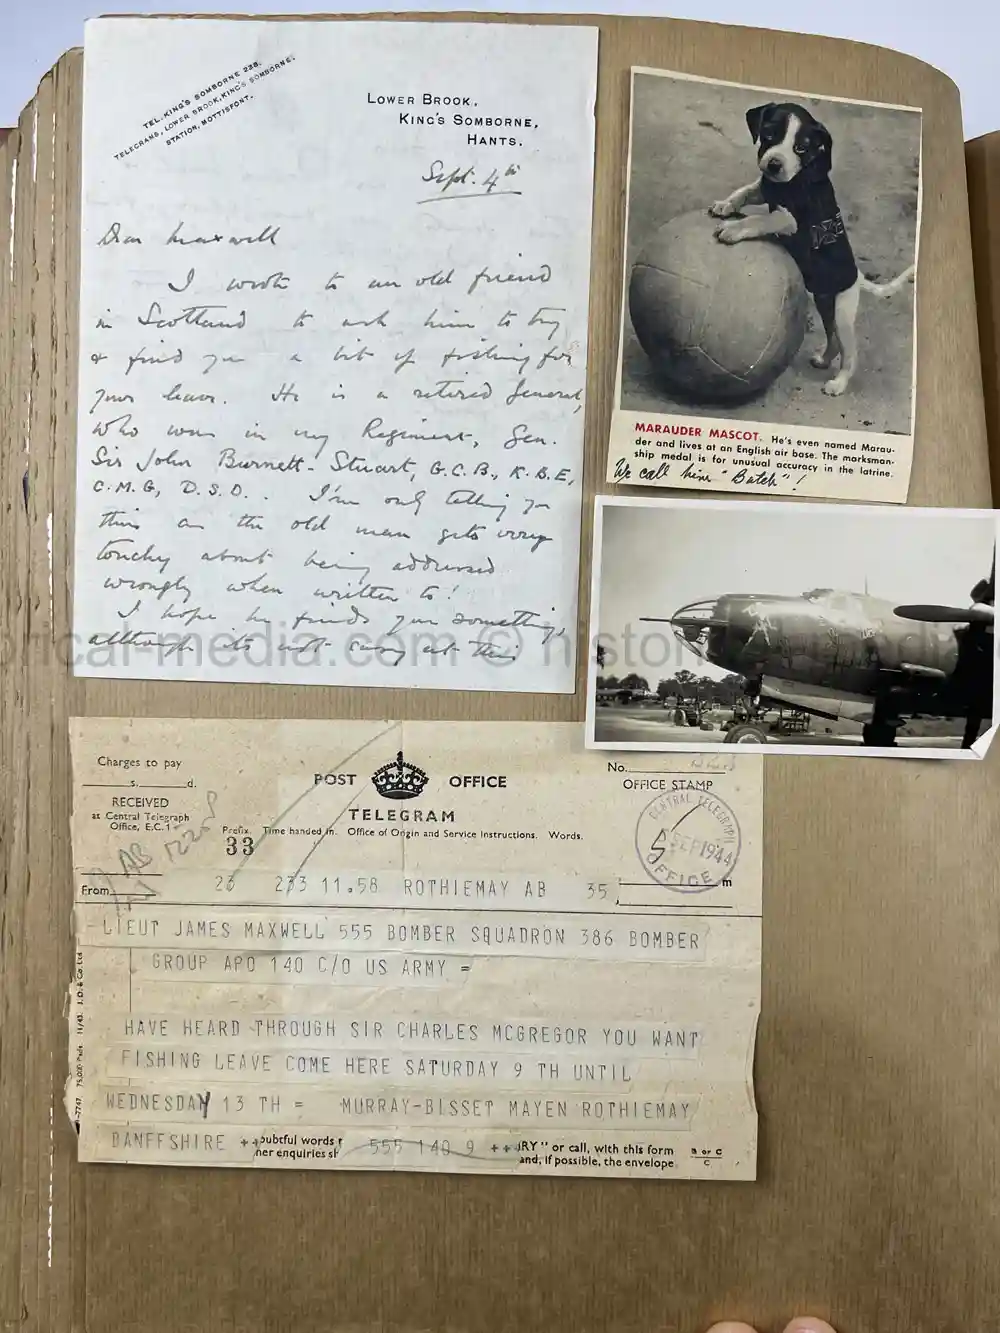 TEL. KING'S SOMBORNE 228.
TELEGRAMS, LOWER BROOK, KING'S SOMBORNE.
STATION, MOTTISFONT.
LOWER BROOK,
KING'S SOMBORNE,
HANTS.
Sept. 4th
Dear Maxwell
I wrote to an old friend
in Scotland to ask him to try
& find you a bit of fishing for
your leave. He is a retired General,
who was in my Regiment, Gen.
Sir John Burnett-Stuart, G.C.B., K.B.E,
C.M.G, D.S.O.. I'm only telling you
this as the old man gets very
touchy about being addressed
wrongly when written to!
I hope he finds you something,
although its not easy at this
MARAUDER MASCOT. He's even named Marau-
der and lives at an English air base. The marksman-
ship medal is for unusual accuracy in the latrine.
We call him "Butch"!
Charges to pay
s. d.
RECEIVED
at Central Telegraph
Office, E.C.1
POST OFFICE
TELEGRAM
Prefix. Time handed in. Office of Origin and Service Instructions. Words.
33
No.
OFFICE STAMP
CENTRAL TELEGRAPH
SEP 1944
OFFICE
m
From
23 233 11.58 ROTHIEMAY AB 35
LIEUT JAMES MAXWELL 555 BOMBER SQUADRON 386 BOMBER
GROUP APO 140 C/O US ARMY =
HAVE HEARD THROUGH SIR CHARLES MCGREGOR YOU WANT
FISHING LEAVE COME HERE SATURDAY 9 TH UNTIL
WEDNESDAY 13 TH = MURRAY-BISSET MAYEN ROTHIEMAY
BANFFSHIRE ++ 555 140 9 ++
oubtful words
ner enquiries sh
RY" or call, with this form
and, if possible, the envelope
B or C
C
75,000 Pads 11/43 J. D. & Co. Ltd
rical-media.com © histor